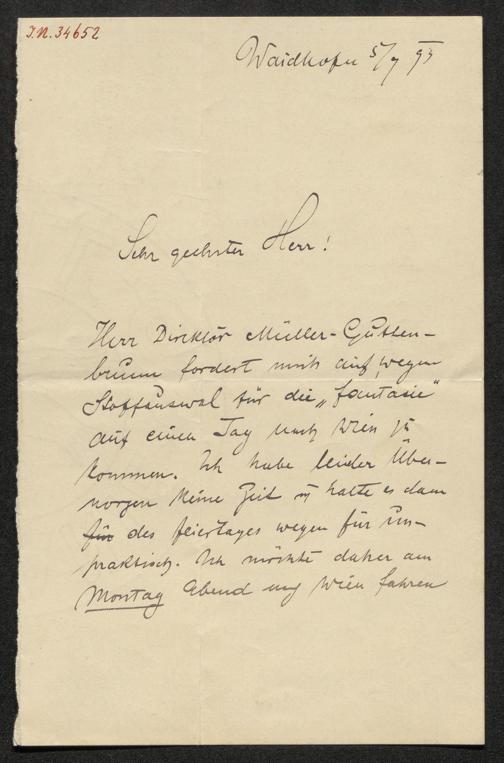 I.N. 34652
Waidhofen 5/9 93
Sehr geehrter Herr!
Herr Direktor Müller-Gutten-
brunn fordert mich auf, wegen
Stoffauswal für die „Fantasie"
auf einen Tag nach Wien zu
kommen. Ich habe leider Über-
morgen keine Zeit u halte es dann
für des Feiertages wegen für un-
praktisch. Ich möchte daher am
Montag Abend nach Wien fahren